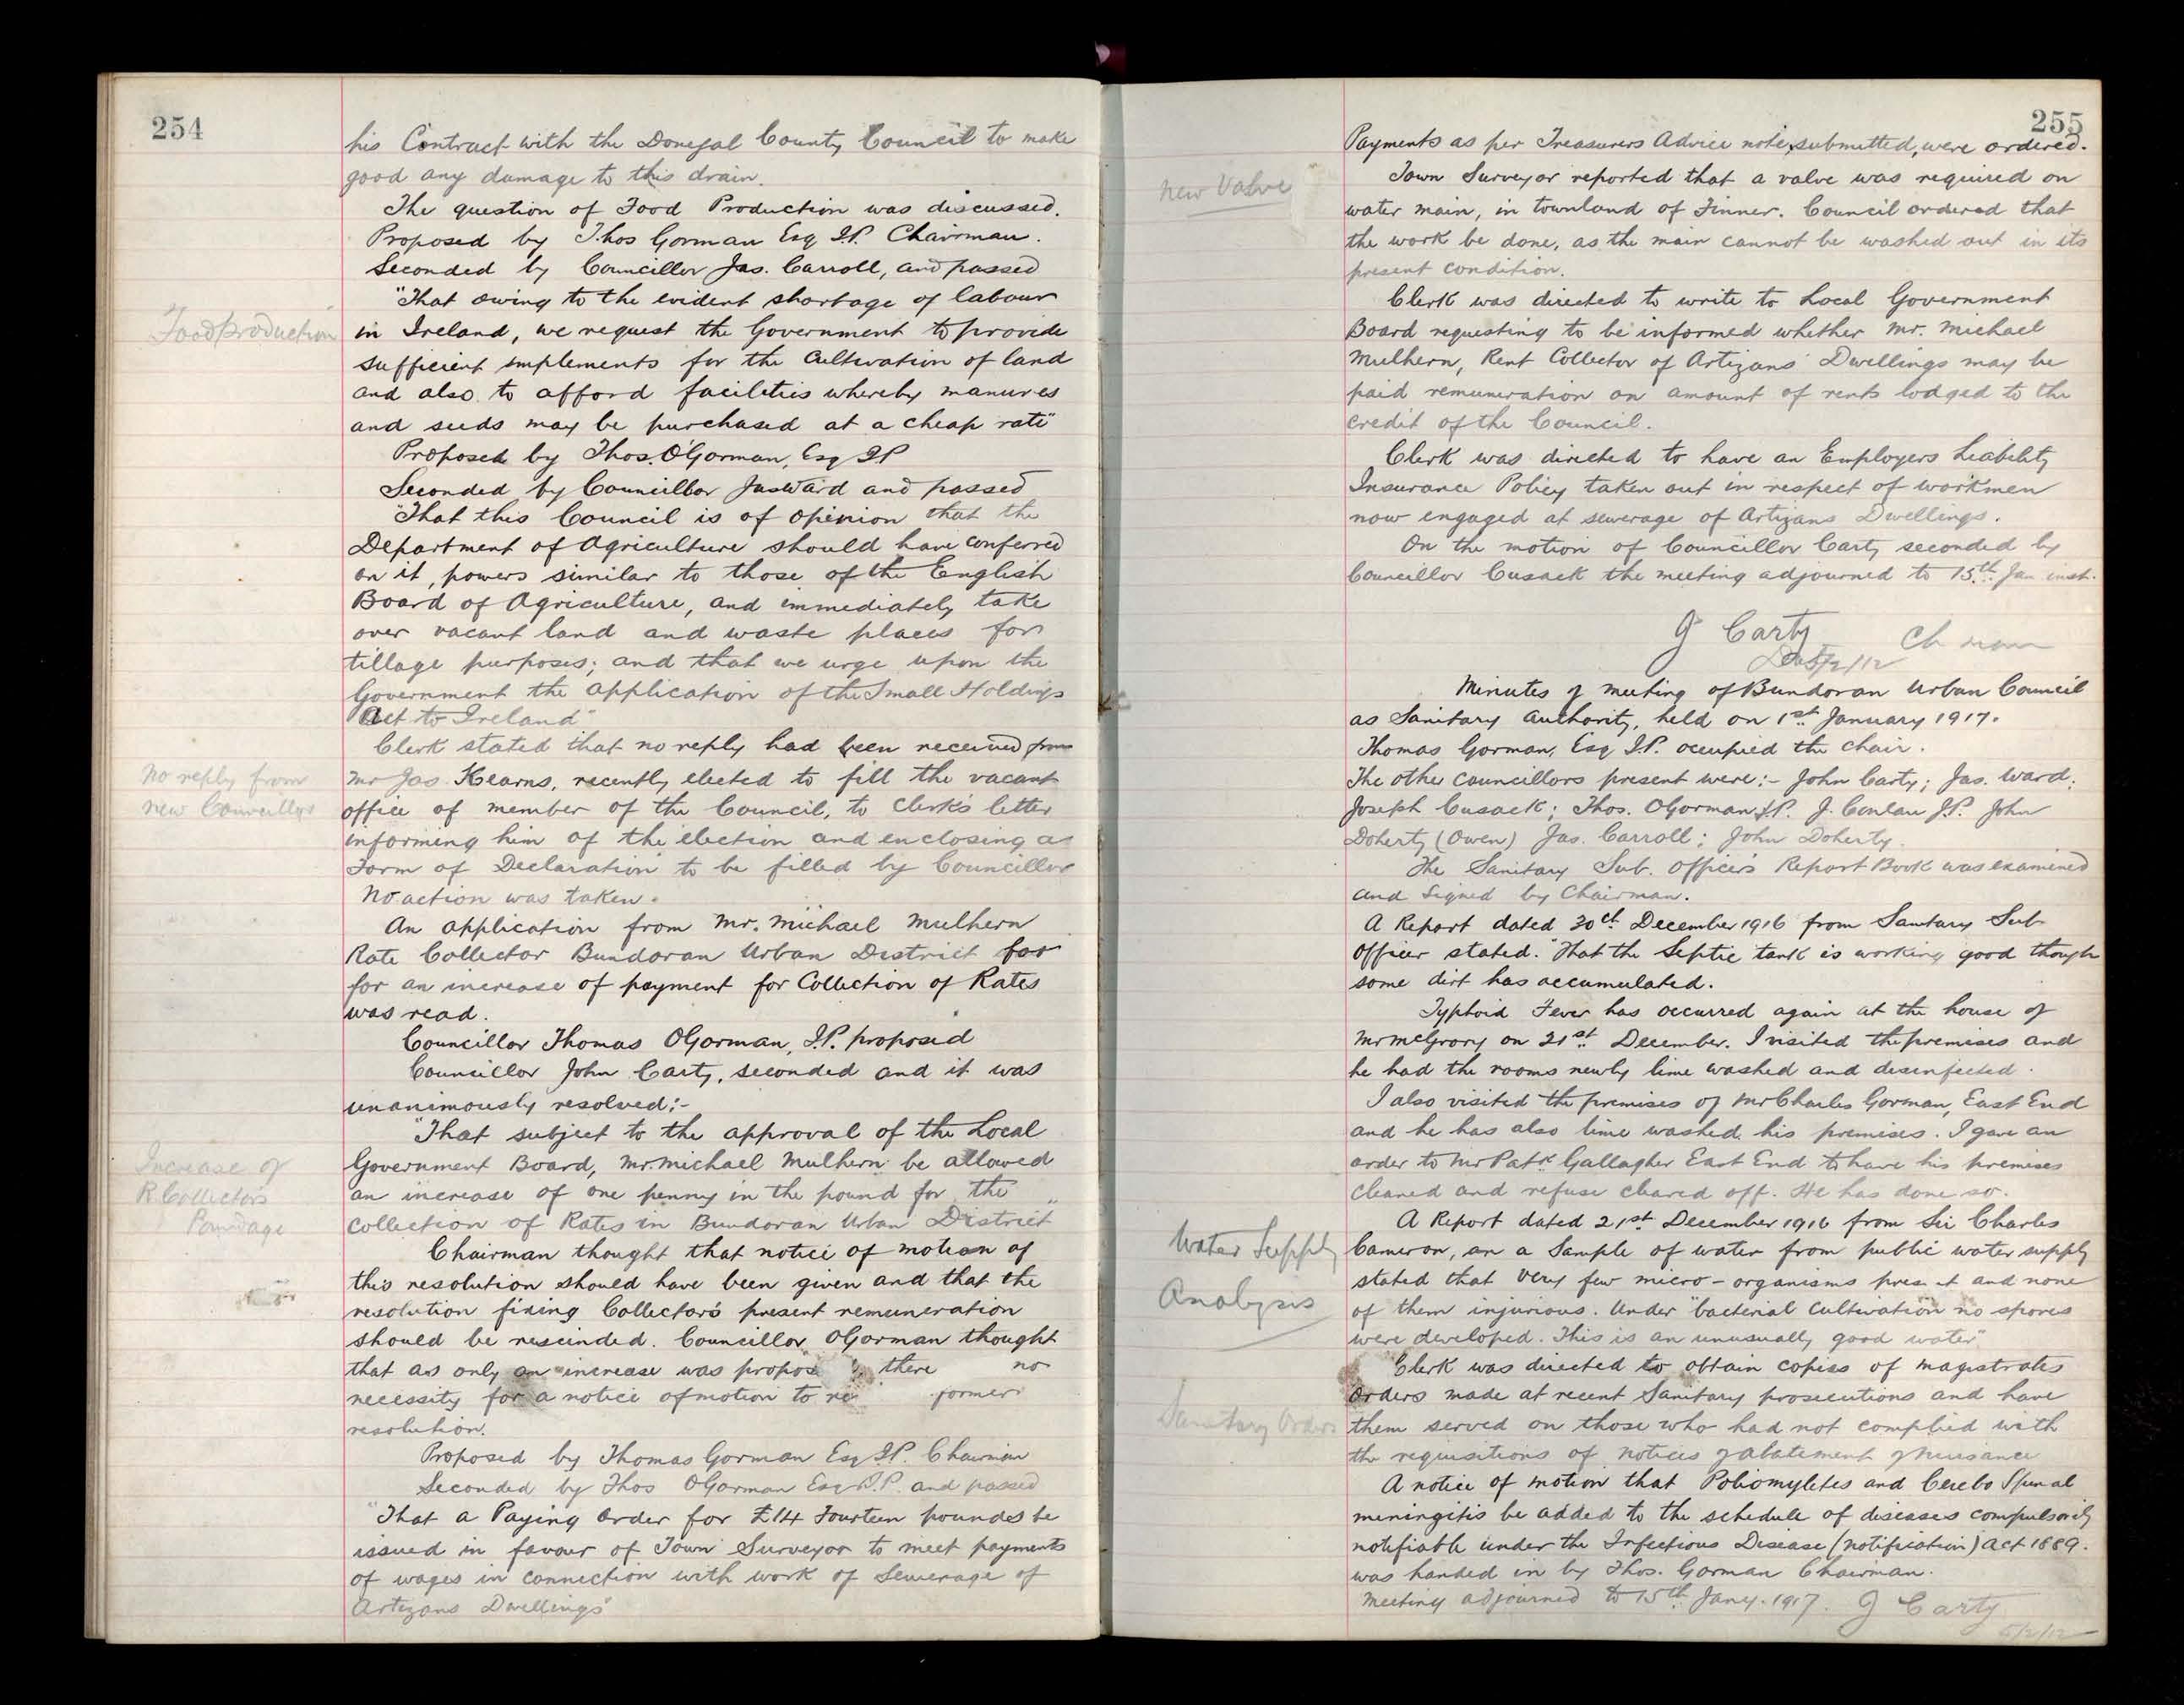 254
his Contract with the Donegal County Council to make
good any damage to this drain.
The question of Food Production was discussed.
Proposed by Thos Gorman Esq J.P. Chairman.
Seconded by Councillor Jas. Carroll, and passed
"That owing to the evident shortage of labour
Food production
in Ireland, we request the Government to provide
sufficient implements for the cultivation of land
and also to afford facilities whereby manures
and seeds may be purchased at a cheap rate"
Proposed by Thos. O'Gorman, Esq JP
Seconded by Councillor Jas Ward and passed
"That this Council is of opinion that the
Department of Agriculture should have conferred
on it, powers similar to those of the English
Board of Agriculture, and immediately take
over vacant land and waste places for
tillage purposes; and that we urge upon the
Government the application of the Small Holdings
Act to Ireland"
Clerk stated that no reply had been received from
No reply from
new Councillor
Mr Jas. Kearns, recently elected to fill the vacant
office of member of the Council, to Clerk's letter
informing him of the election and enclosing a
Form of Declaration to be filled by Councillor
No action was taken.
An application from Mr. Michael Mulhern
Rate Collector Bundoran Urban District for
for an increase of payment for Collection of Rates
was read.
Councillor Thomas OGorman, J.P. proposed
Councillor John Carty, seconded and it was
unanimously resolved:-
"That subject to the approval of the Local
Increase of
R Collector's
Poundage
Government Board, Mr. Michael Mulhern be allowed
an increase of one penny in the pound for the
collection of Rates in Bundoran Urban District"
Chairman thought that notice of motion of
this resolution should have been given and that the
resolution fixing Collector's present remuneration
should be rescinded. Councillor OGorman thought
that as only an increase was propos there no
necessity for a notice of motion to re former
resolution.
Proposed by Thomas Gorman Esq J.P. Chairman
Seconded by Thos OGorman Esq J.P. and passed
"That a Paying Order for £14 Fourteen pounds be
issued in favour of Town Surveyor to meet payments
of wages in connection with work of Sewerage of
Artizans Dwellings"
255
Payments as per Treasurers Advice note, submitted, were ordered.
New Valve
Town Surveyor reported that a valve was required on
water main, in townland of Finner. Council ordered that
the work be done, as the main cannot be washed out in its
present condition.
Clerk was directed to write to Local Government
Board requesting to be informed whether Mr. Michael
Mulhern, Rent Collector of Artizans' Dwellings may be
paid remuneration on amount of rents lodged to the
credit of the Council.
Clerk was directed to have an Employers Liability
Insurance Policy taken out in respect of workmen
now engaged at sewerage of Artizans Dwellings.
On the motion of Councillor Carty seconded by
Councillor Cusack the meeting adjourned to 15th Jan inst.
J Carty Ch man
Minutes of meeting of Bundoran Urban Council
as Sanitary Authority, held on 1st January 1917.
Thomas Gorman, Esq J.P. occupied the chair.
The other Councillors present were:- John Carty; Jas. Ward;
Joseph Cusack; Thos. OGorman J.P. J. Conlan J.P. John
Doherty (Owen) Jas. Carroll; John Doherty.
The Sanitary Sub. Officer's Report Book was examined
and signed by Chairman.
A Report dated 30th December 1916 from Sanitary Sub
Officer stated. "That the Septic tank is working good though
some dirt has accumulated.
Typhoid Fever has occurred again at the house of
Mr McGrory on 21st December. I visited the premises and
he had the rooms newly lime washed and desinfected.
I also visited the premises of Mr Charles Gorman, East End
and he has also lime washed his premises. I gave an
order to Mr Patk Gallagher East End to have his premises
cleaned and refuse cleared off. He has done so.
A Report dated 21st December 1916 from Sir Charles
Water Supply
Analysis
Cameron, on a Sample of water from public water supply
stated that very few micro-organisms present and none
of them injurious. Under "bacterial cultivation" no spores
were developed. This is an unusually good water"
Clerk was directed to obtain copies of magistrates
Sanitary Orders
orders made at recent Sanitary prosecutions and have
them served on those who had not complied with
the requisitions of notices of abatement of nuisance
A notice of motion that Poliomyletes and Cerebo Spinal
meningitis be added to the schedule of diseases compulsorily
notifiable under the Infectious Disease (notification) Act 1889.
was handed in by Thos. Gorman Chairman.
Meeting adjourned to 15th Jany. 1917. J Carty